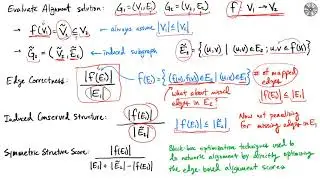 Evaluate Alignment solution: G₁ = (V₁, E₁) G₂ = (V₂, E₂) f: V₁ → V₂
→ f(V₁) = Ṽ₂ ⊆ V₂ ← always assume |V₁| ≤ |V₂|
→ G̃₂ = (Ṽ₂, Ẽ₂) ← induced subgraph Ẽ₂ = {(u,v) | (u,v) ∈ E₂; u,v ∈ f(V₁)}
Edge Correctness: |f(E₁)| / |E₁| f(E₁) = {(f(u), f(v)) ∈ E₂ | (u,v) ∈ E₁} # of mapped edges
what about mapped edges in E₂ |f(E₁)| ≤ |E₁|
Induced Conserved Structure: |f(E₁)| / |Ẽ₂| |f(E₁)| ≤ |Ẽ₂| Now not penalizing for missing edges in E₁
Symmetric Structure Score: |f(E₁)| / |E₁| + |Ẽ₂| - |f(E₁)| Black-box optimization techniques used to
do network alignment by directly optimizing
the edge based alignment scores